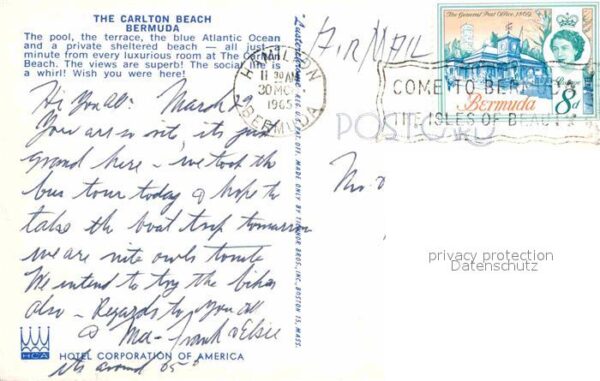 THE CARLTON BEACH
BERMUDA
The pool, the terrace, the blue Atlantic Ocean
and a private sheltered beach — all just a
minute from every luxurious room at The Carlton
Beach. The views are superb! The social life is
a whirl! Wish you were here!
Hi You All: March 29
You are so rite, its just
grand here – we took the
bus tour today & hope to
take the boat trip tomorrow
we are nite owls tonite
We intend to try the bikes
also – Regards to you all
Frank & Elsie
its around 65°
HCA
HOTEL CORPORATION OF AMERICA
MADE ONLY BY TICHNOR BROS., INC., BOSTON 15, MASS.
AIRMAIL
HAMILTON
11 30 AM
30 MCH
1965
BERMUDA
COME TO BERMUDA
THE ISLES OF BEAUTY
The General Post Office, 1869
Bermuda
8d
POSTCARD
privacy protection
Datenschutz